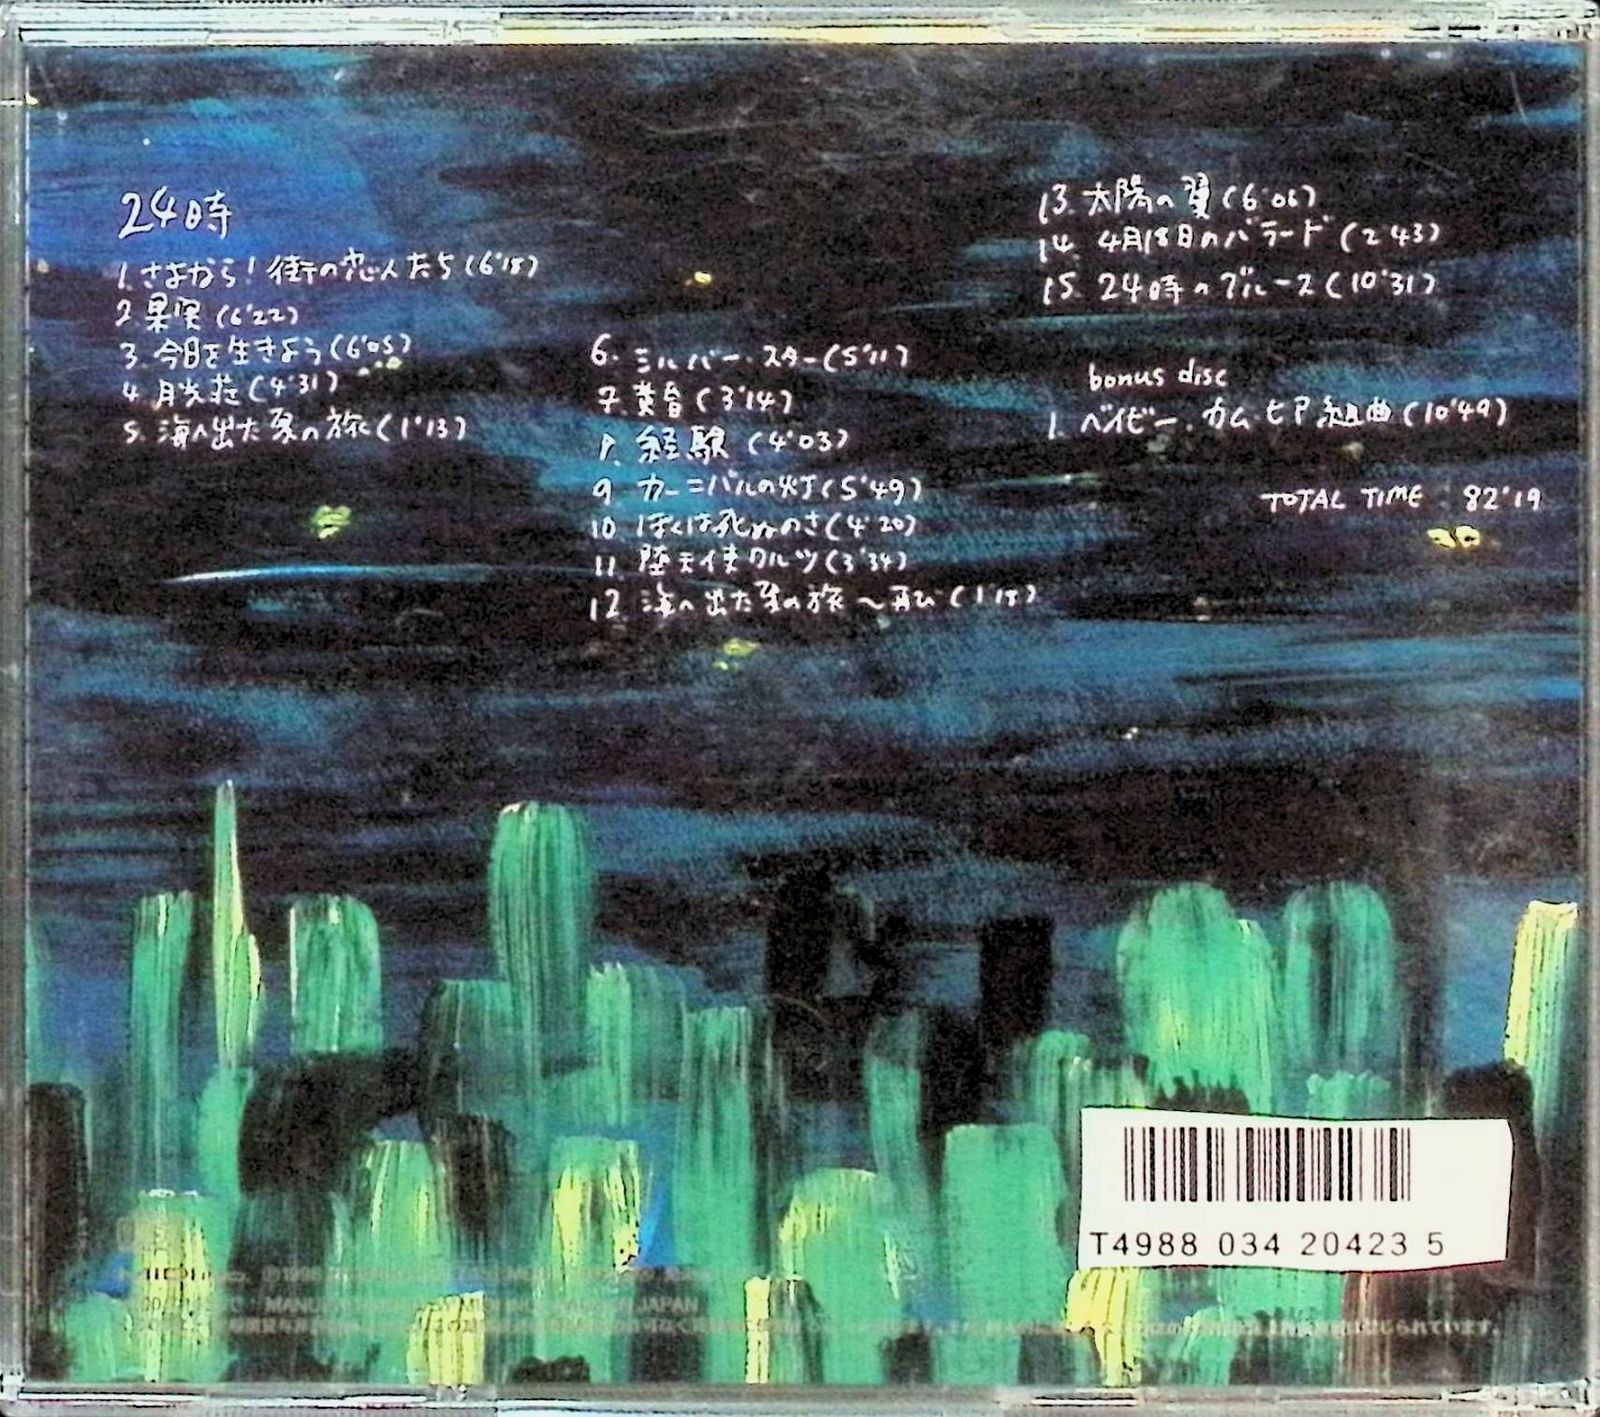 24時
1. さよなら!街の恋人たち(6'18)
2. 果実(6'22)
3. 今日を生きよう(6'05)
4. 月光荘(4'31)
5. 海へ出た夏の旅(1'13)
6. シルバー・スター(5'11)
7. 黄昏(3'14)
8. 経験(4'03)
9. カーニバルの灯(5'49)
10. ぼくは死ぬのさ(4'20)
11. 堕天使ワルツ(3'34)
12. 海へ出た夏の旅〜再び(1'18)
13. 太陽の翼(6'06)
14. 4月18日のバラード(2'43)
15. 24時のブルース(10'31)
bonus disc
1. ベイビー・カム・ヒア組曲(10'49)
TOTAL TIME : 82'19
T4988 034 20423 5
JAPAN
られています。